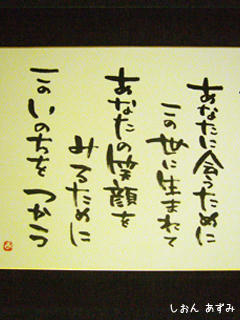 あなたに会うために
この世に生まれて
あなたの笑顔を
みるために
このいのちを つかう
しおん あずみ